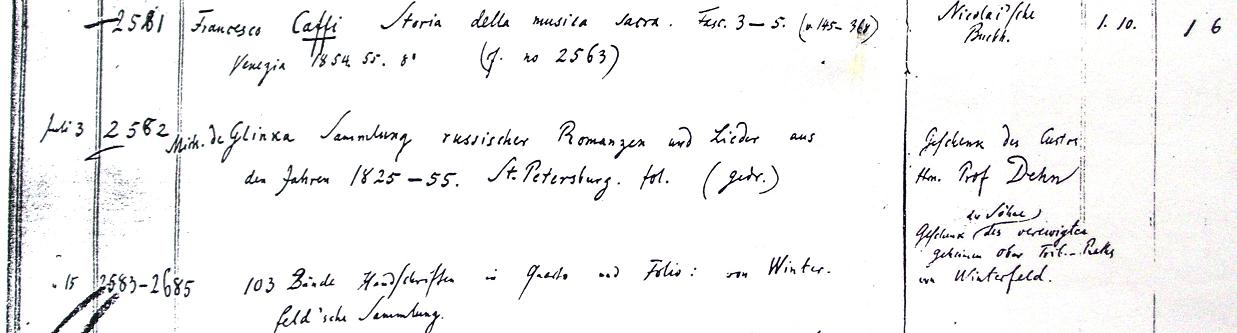 2581 Francesco Caffi Storia della musica sacra. Fasc. 3–5. (p. 145–368) Nicolai'sche 1. 10. 1 6
Venezia 1854. 55. 8° (cf. no 2563) Buchh.
Juli 3 2582 Mich. de Glinka Sammlung russischer Romanzen und Lieder aus Geschenk des Custos
den Jahren 1825–55. St. Petersburg. fol. (gedr.) Hrn. Prof Dehn
der Söhne
Geschenk des verewigten
geheimen Ober Trib.-Raths
" 15 2583–2685 103 Bände Handschriften in Quarto und Folio: von Winter- von Winterfeld.
feld'sche Sammlung.